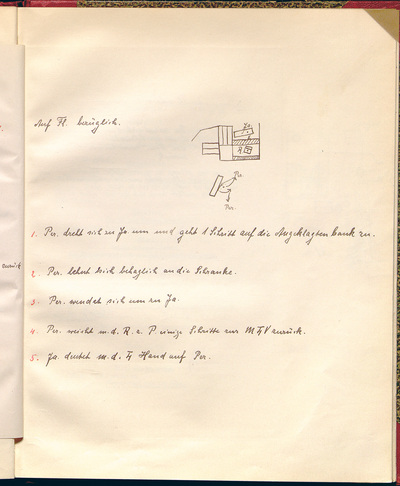 Auf Fl. bezüglich.
Ja.
Per.
Per.
1. Per. dreht sich zu Ja. um und geht 1 Schritt auf die Angeklagtenbank zu.
2. Per. lehnt sich behaglich an die Schranke.
3. Per. wendet sich um zu Ja.
4. Per. weicht m. d. R. z. P. einige Schritte zur zurück.
5. Ja. deutet m. d. Hand auf Per.